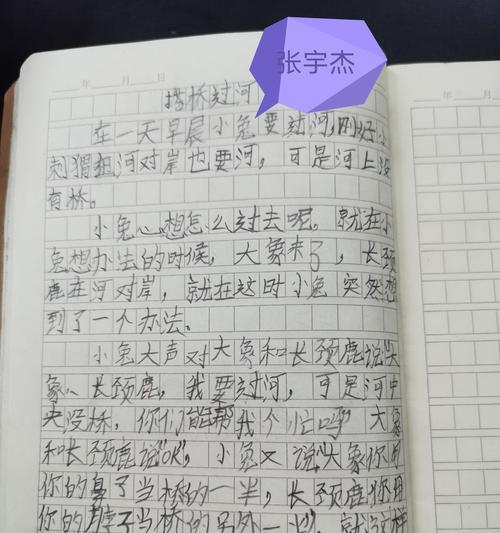 张宇杰
年 月 日
搭桥过河
在一天早晨小兔要过河，刚好小
刺猬在河对岸也要河，可是河上没
有桥。
小兔心想怎么过去呢，就在小
兔想办法的时候，大象来了，长颈
鹿在河对岸，就在这时小兔突然想
到了一个办法。
小兔大声对大象和长颈鹿说"大
象、长颈鹿，我要过河，可是河中
央没桥，你们能帮我个忙吗"大象
和长颈鹿说"OK"，小兔又说"大象你用
你的鼻子当桥的一半，长颈鹿你用
你的脖子当桥的另外一半，就这样